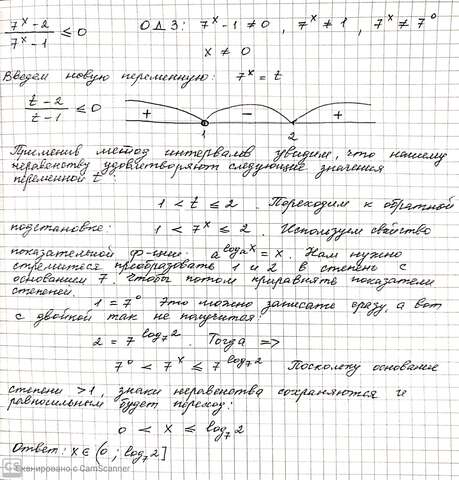 (7ˣ - 2)/(7ˣ - 1) ≤ 0   ОДЗ: 7ˣ - 1 ≠ 0, 7ˣ ≠ 1, 7ˣ ≠ 7⁰
x ≠ 0
Введем новую переменную: 7ˣ = t
(t - 2)/(t - 1) ≤ 0   + − +
1 2
Применив метод интервалов увидим, что нашему
неравенству удовлетворяют следующие значения
переменной t:
1 < t ≤ 2. Переходим к обратной
подстановке: 1 < 7ˣ ≤ 2. Используем свойство
показательной ф-ции: a^(logₐx) = x. Нам нужно
стремиться преобразовать 1 и 2 в степень с
основанием 7. Чтобы потом приравнять показатели
степеней.
1 = 7⁰ Это можно записать сразу, а вот
с двойкой так не получится!
2 = 7^(log₇2). Тогда =>
7⁰ < 7ˣ ≤ 7^(log₇2) Поскольку основание
степени > 1, знаки неравенства сохраняются и
равносильным будет переход:
0 < x ≤ log₇2
Ответ: x ∈ (0; log₇2]
CS Сканировано с CamScanner